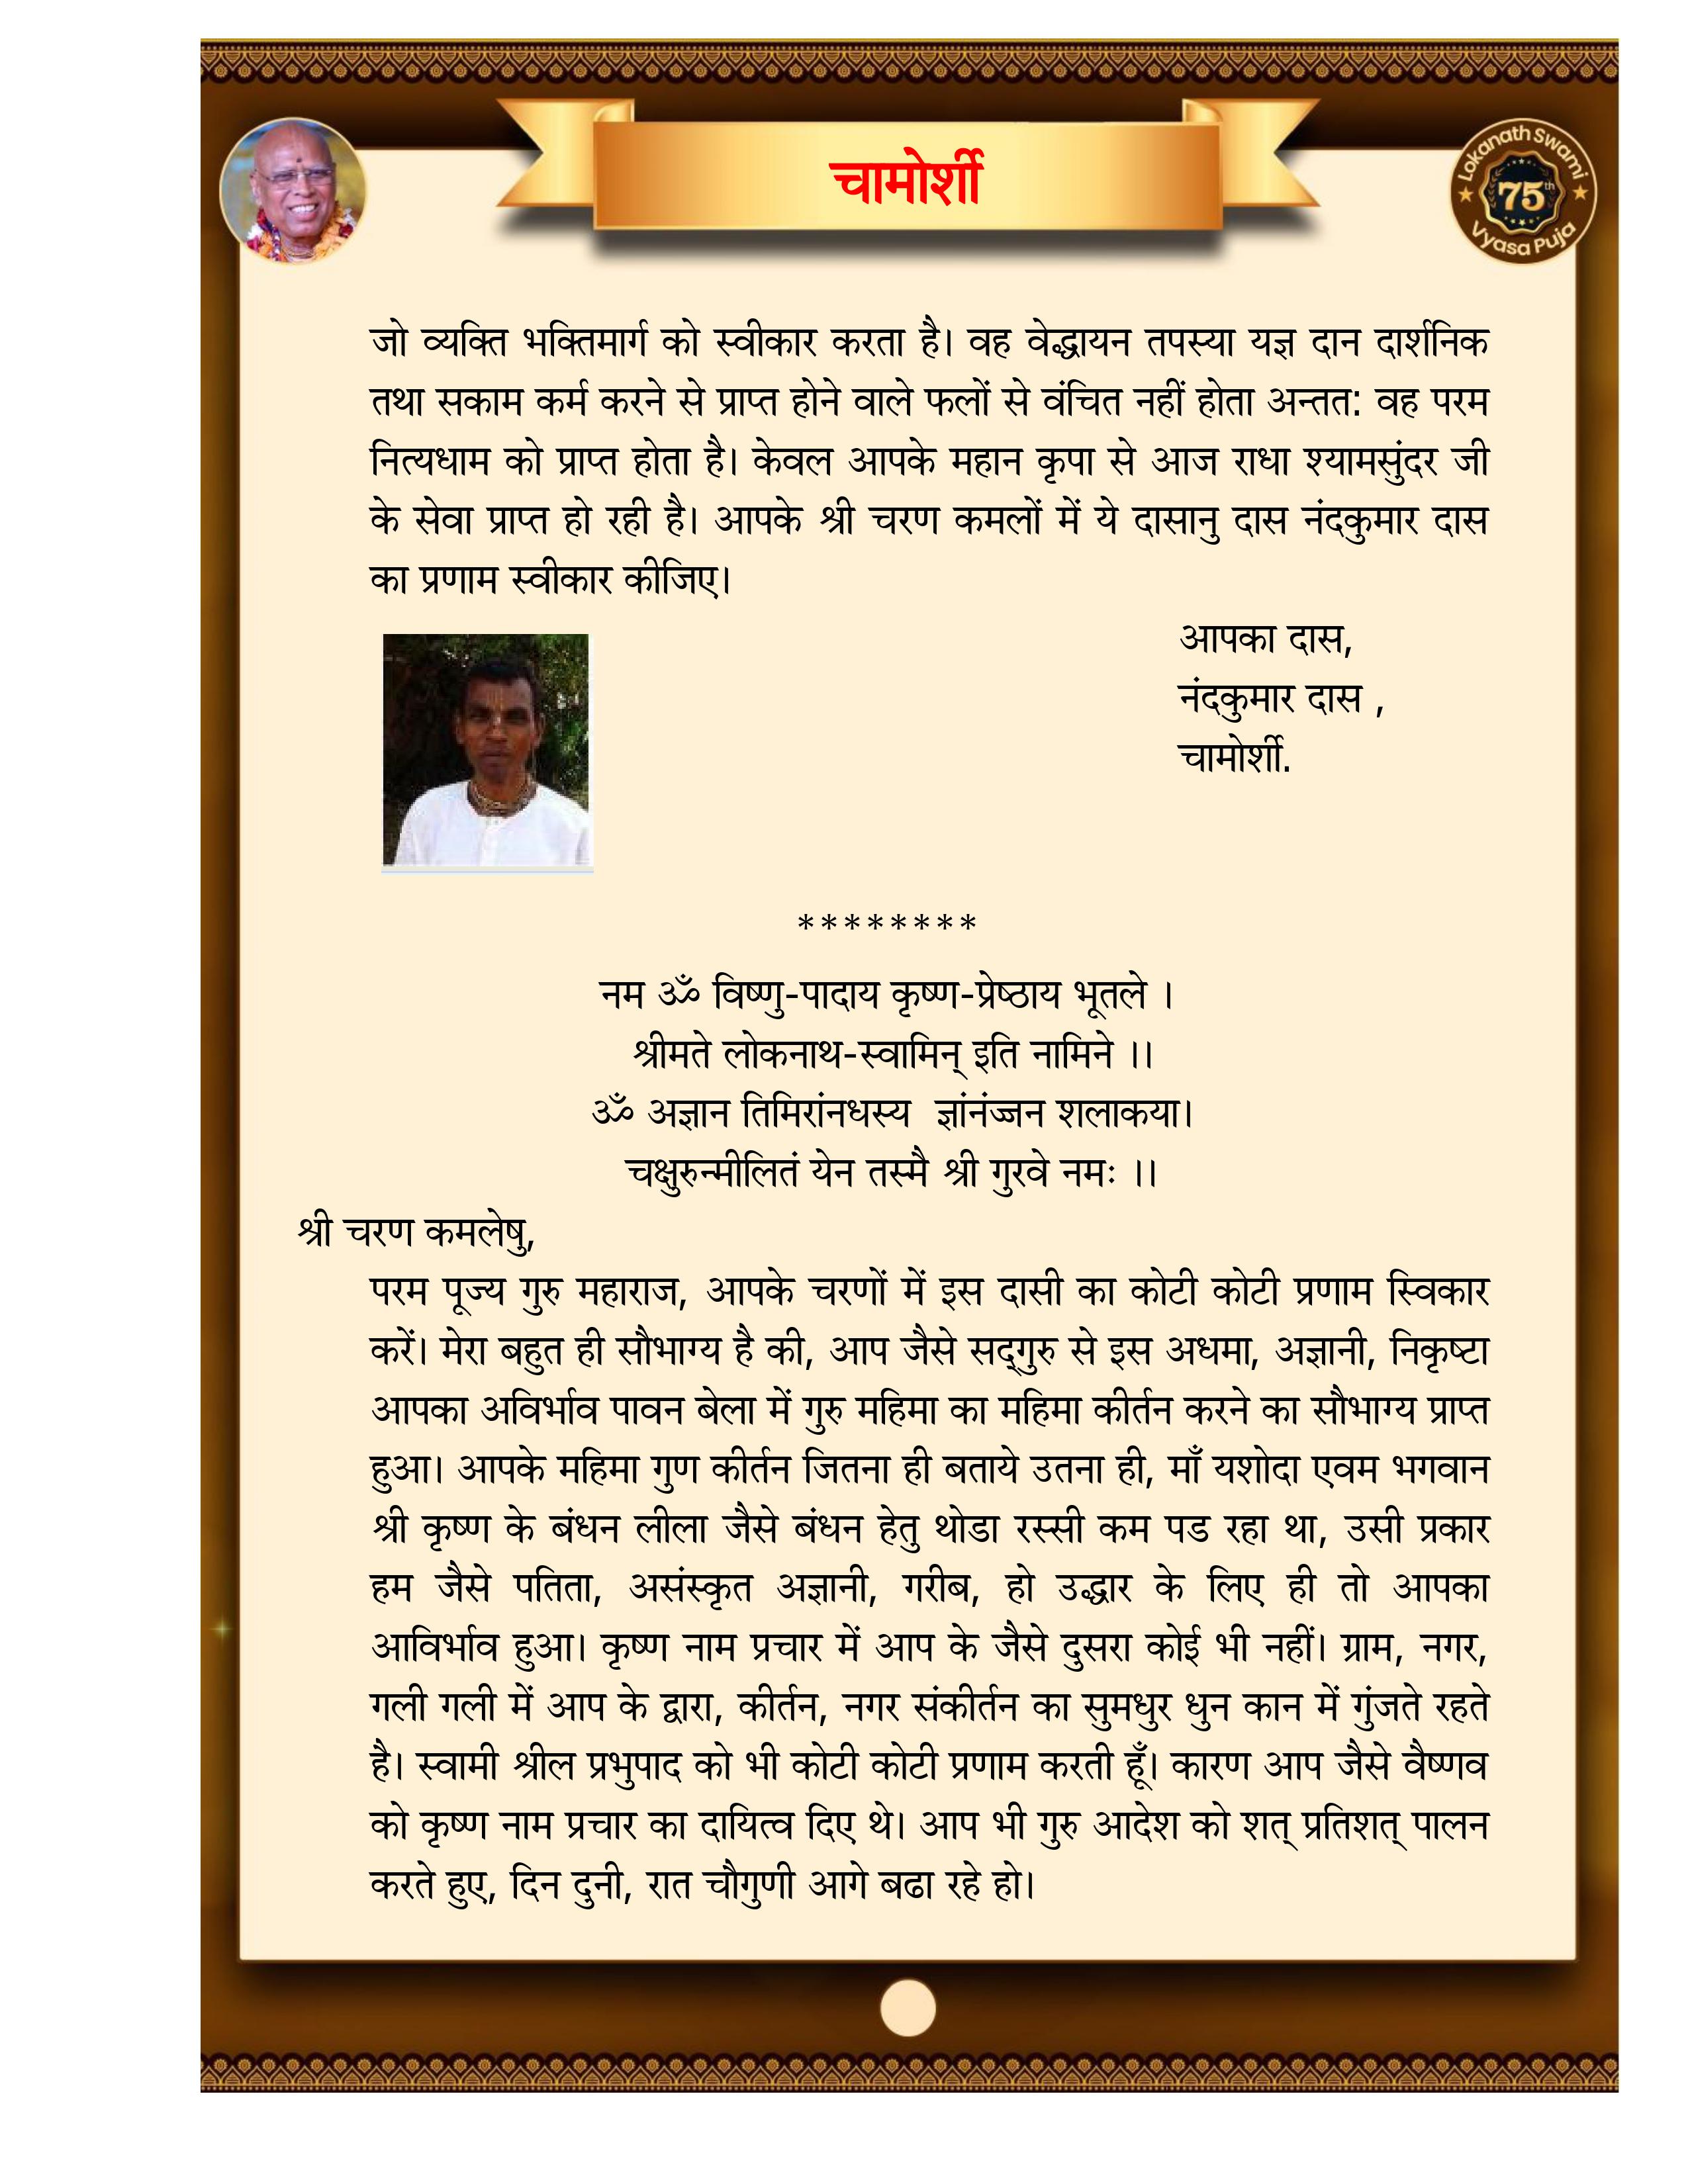 चामोर्शी
Lokanath Swami
75th
Vyasa Puja
जो व्यक्ति भक्तिमार्ग को स्वीकार करता है। वह वेद्धायन तपस्या यज्ञ दान दार्शनिक
तथा सकाम कर्म करने से प्राप्त होने वाले फलों से वंचित नहीं होता अन्तत: वह परम
नित्यधाम को प्राप्त होता है। केवल आपके महान कृपा से आज राधा श्यामसुंदर जी
के सेवा प्राप्त हो रही है। आपके श्री चरण कमलों में ये दासानु दास नंदकुमार दास
का प्रणाम स्वीकार कीजिए।
आपका दास,
नंदकुमार दास ,
चामोर्शी.
********
नम ॐ विष्णु-पादाय कृष्ण-प्रेष्ठाय भूतले ।
श्रीमते लोकनाथ-स्वामिन् इति नामिने ।।
ॐ अज्ञान तिमिरांनधस्य ज्ञांनंज्जन शलाकया।
चक्षुरुन्मीलितं येन तस्मै श्री गुरवे नमः ।।
श्री चरण कमलेषु,
परम पूज्य गुरु महाराज, आपके चरणों में इस दासी का कोटी कोटी प्रणाम स्विकार
करें। मेरा बहुत ही सौभाग्य है की, आप जैसे सद्‌गुरु से इस अधमा, अज्ञानी, निकृष्टा
आपका अविर्भाव पावन बेला में गुरु महिमा का महिमा कीर्तन करने का सौभाग्य प्राप्त
हुआ। आपके महिमा गुण कीर्तन जितना ही बताये उतना ही, माँ यशोदा एवम भगवान
श्री कृष्ण के बंधन लीला जैसे बंधन हेतु थोडा रस्सी कम पड रहा था, उसी प्रकार
हम जैसे पतिता, असंस्कृत अज्ञानी, गरीब, हो उद्धार के लिए ही तो आपका
आविर्भाव हुआ। कृष्ण नाम प्रचार में आप के जैसे दुसरा कोई भी नहीं। ग्राम, नगर,
गली गली में आप के द्वारा, कीर्तन, नगर संकीर्तन का सुमधुर धुन कान में गुंजते रहते
है। स्वामी श्रील प्रभुपाद को भी कोटी कोटी प्रणाम करती हूँ। कारण आप जैसे वैष्णव
को कृष्ण नाम प्रचार का दायित्व दिए थे। आप भी गुरु आदेश को शत् प्रतिशत् पालन
करते हुए, दिन दुनी, रात चौगुणी आगे बढा रहे हो।